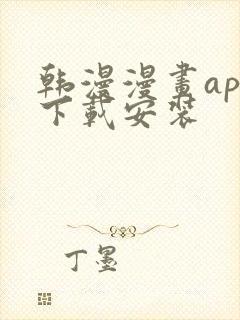 韩漫漫畫ap
下載安裝
丁墨